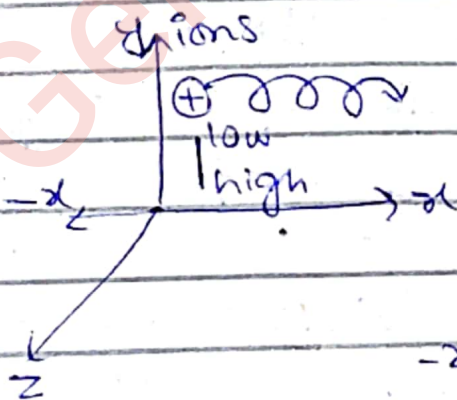 y ions
⊕
low
high
-x x
z